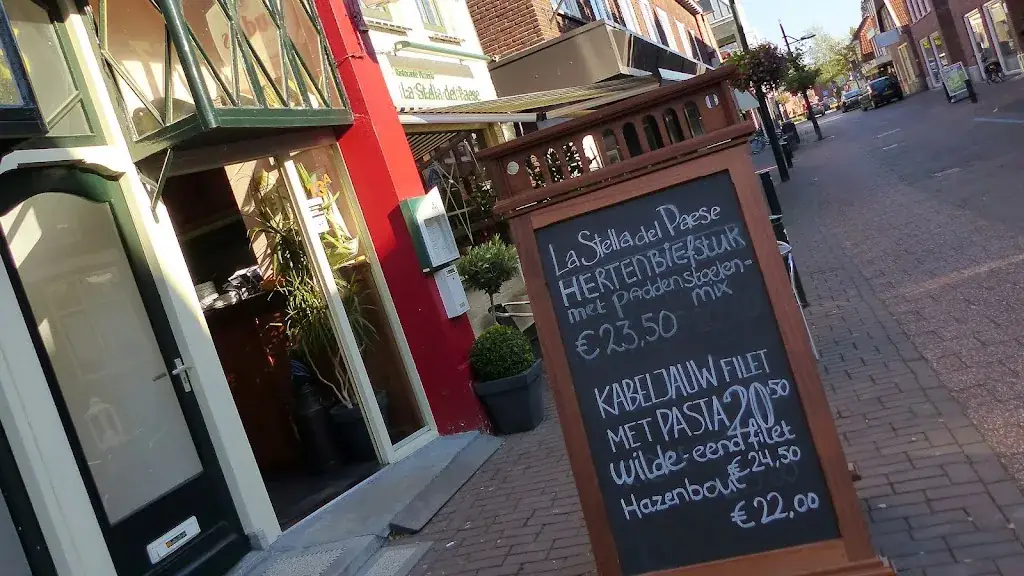 La Stella del Paese
La Stella del Paese
HERTENBIEFSTUK
met paddenstoelen-
mix
€23,50
KABELJAUW FILET
MET PASTA 20,50
wilde-eendfilet
€24,50
Hazenbout
€22,00